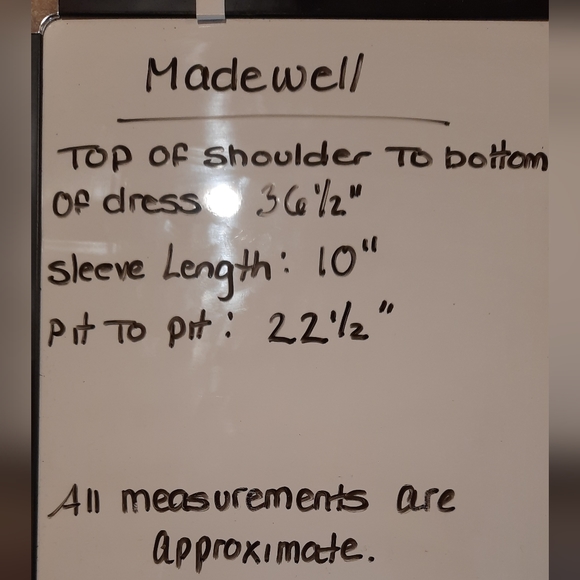 Madewell
TOP OF shoulder TO bottom
OF dress 36 1/2"
sleeve Length: 10"
pit TO pit: 22 1/2"
All measurements are
approximate.